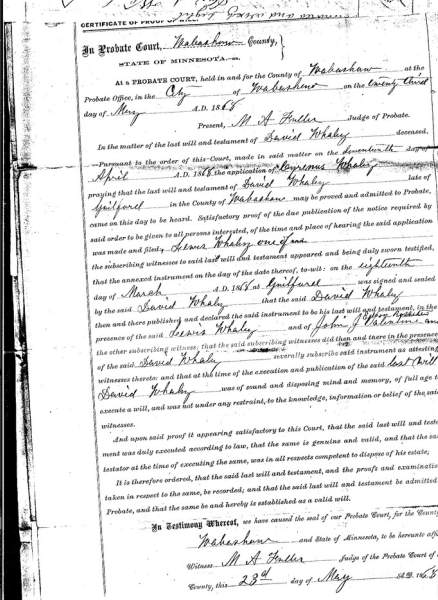 CERTIFICATE OF PROOF OF
In Probate Court, Wabashaw County,
STATE OF MINNESOTA—ss.
At a PROBATE COURT, held in and for the County of Wabashaw at the
Probate Office, in the City of Wabashaw on the twenty third
day of May A.D. 1868
Present, M A Fuller Judge of Probate.
In the matter of the last will and testament of David Whaley deceased,
Pursuant to the order of this Court, made in said matter on the seventeenth day of
April A.D. 1868 the application of Whaley
praying that the last will and testament of David Whaley late of
Guilford in the County of Wabashaw may be proved and admitted to Probate,
came on this day to be heard. Satisfactory proof of the due publication of the notice required by
said order to be given to all persons interested, of the time and place of hearing the said application
was made and filed, Lewis Whaley one of
the subscribing witnesses to said last will and testament appearing and being duly sworn testified,
that the annexed instrument on the day of the date thereof, to-wit: on the eighteenth
day of March A.D. 1868 at Guilford was signed and sealed
by the said David Whaley that the said David Whaley
then and there published and declared the said instrument to be his last will and testament, in the
presence of the said Lewis Whaley and of John J Valentine and
the other subscribing witness; that the said subscribing witnesses did then and there in the presence
of the said David Whaley severally subscribe said instrument as attesting
witnesses thereto: and that at the time of the execution and publication of the said last Will
David Whaley was of sound and disposing mind and memory, of full age t
execute a will, and was not under any restraint, to the knowledge, information or belief of the said
witnesses.
And upon said proof it appearing satisfactory to this Court, that the said last will and testa
ment was duly executed according to law, that the same is genuine and valid, and that the sa
testator at the time of executing the same, was in all respects competent to dispose of his estate;
It is therefore ordered, that the said last will and testament, and the proofs and examinatio
taken in respect to the same, be recorded; and that the said last will and testament be admitted
Probate, and that the same be and hereby is established as a valid will.
In Testimony Whereof, we have caused the seal of our Probate Court, for the Count
Wabashaw and State of Minnesota, to be hereunto affix
Witness M A Fuller Judge of the Probate Court of
County, this 23d day of May 1868